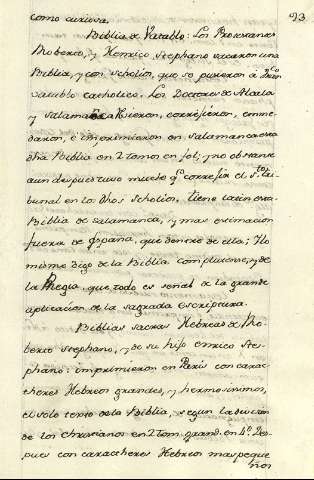 93
como curiosa.
Biblia de Vatablo: Los Protestantes
Roberto, y Henrico Stephano sacaron una
Biblia, y con scholios, que se pusieron a
Vatablo catholico. Los Doctores de Alcala
y Salamanca vieron, corrijieron, enmen
daron, e imprimieron en Salamanca esta
dha Biblia en 2 tomos en fol; y no obstante
aun despues tuvo mucho q corregir el s.to tri
bunal en los dhos scholios. tiene latin esta
Biblia de Salamanca, y mas estimacion
fuera de España, que dentro de ella; Y lo
mismo digo de la Biblia complutense, y de
la Rhegia, que todo es señal de la grande
aplicacion de la sagrada escriptura.
Biblias sacras Hebreas de Ro
berto Stephano, y de su hijo enrico Ste
phano: imprimieron en Paris con carac
theres Hebreos grandes, y hermosisimos,
el solo texto de la Biblia, segun la division
de los christianos en 2 tom. grand. en 4º. Des
pues con caractheres Hebreos mas peque
ños